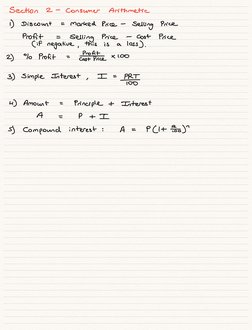 Section 2 - Consumer Arithmetic
1) Discount = Marked Price - Selling Price
Profit = Selling Price - Cost Price
(if negative, this is a loss).
2) % Profit = Profit / Cost Price × 100
3) Simple Interest, I = PRT / 100
4) Amount = Principle + Interest
A = P + I
5) Compound interest: A = P(1 + R/100)^n